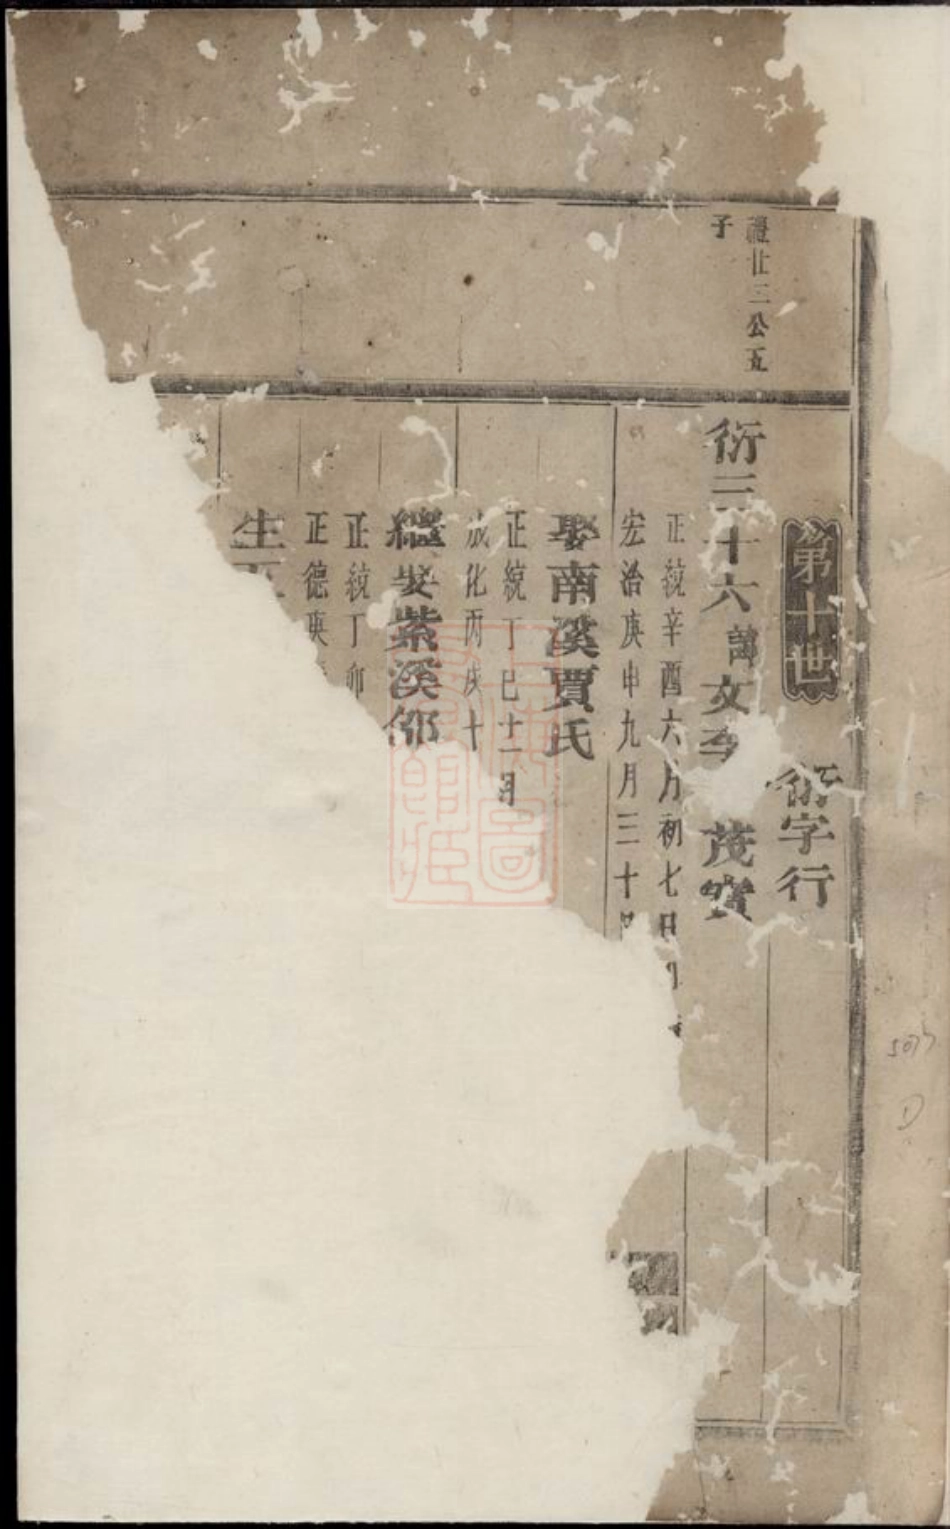 第十世
衍字行
禮廿三公五
子
衍三十六諱文 茂實
正統辛酉六月初七日
宏治庚申九月三十日
娶南溪賈氏
正統丁巳十二月
成化丙戌十
繼娶紫溪邵
正統丁卯
正德庚
生
上海圖書館藏